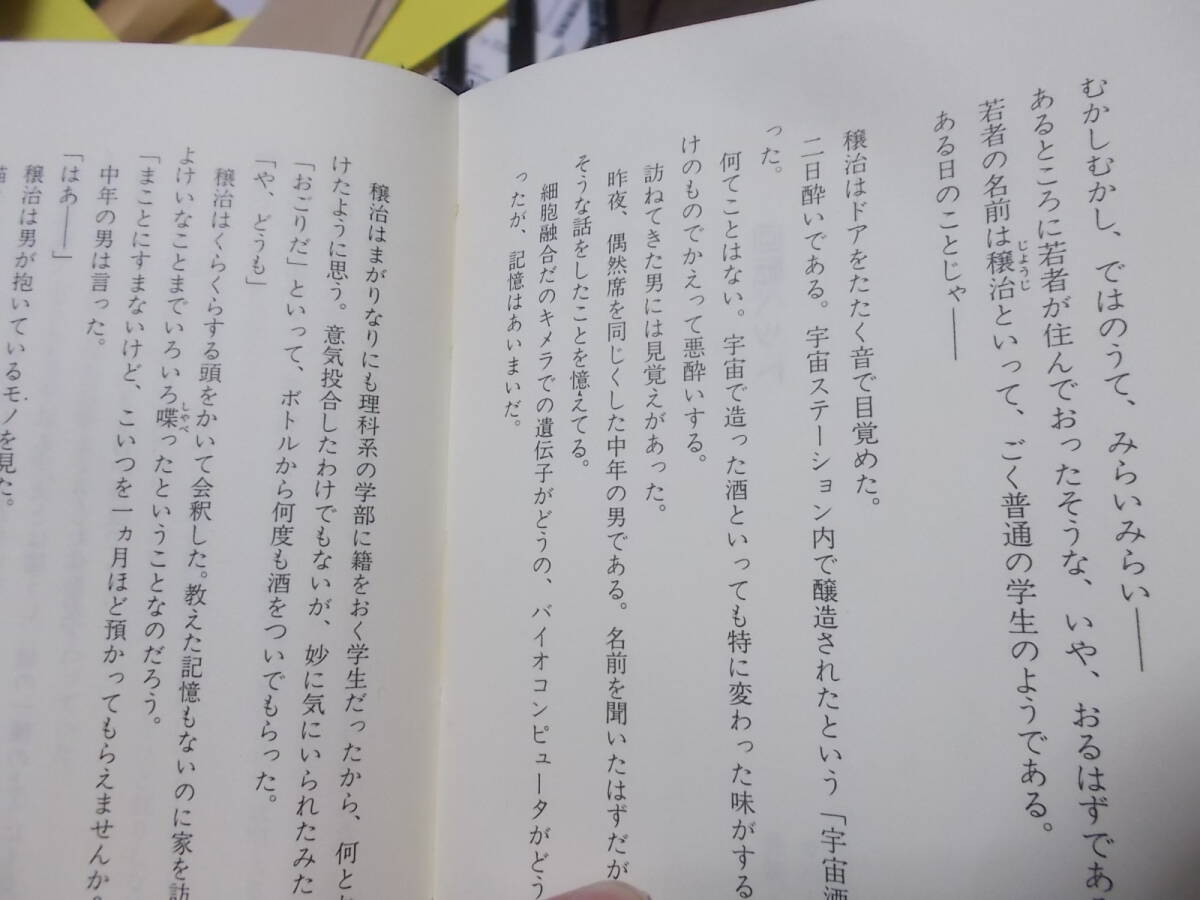 むかしむかし、ではのうて、みらいみらい――
あるところに若者が住んでおったそうな、いや、おるはずであ
若者の名前は穣治といって、ごく普通の学生のようである。
じょうじ
ある日のことじゃ――
穣治はドアをたたく音で目覚めた。
二日酔いである。宇宙ステーション内で醸造されたという「宇宙酒
った。
何てことはない。宇宙で造った酒といっても特に変わった味がする
けのものでかえって悪酔いする。
訪ねてきた男には見覚えがあった。
昨夜、偶然席を同じくした中年の男である。名前を聞いたはずだが
そうな話をしたことを憶えてる。
細胞融合だのキメラでの遺伝子がどうの、バイオコンピュータがどう
ったが、記憶はあいまいだ。
穣治はまがりなりにも理科系の学部に籍をおく学生だったから、何と
けたように思う。意気投合したわけでもないが、妙に気にいられたみた
「おごりだ」といって、ボトルから何度も酒をついでもらった。
「や、どうも」
穣治はくらくらする頭をかいて会釈した。教えた記憶もないのに家を訪
よけいなことまでいろいろ喋ったということなのだろう。
しゃべ
「まことにすまないけど、こいつを一ヵ月ほど預かってもらえませんか
中年の男は言った。
「はあ――」
穣治は男が抱いているモノを見た。